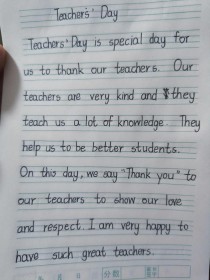 Teachers' Day
Teachers' Day is special day for
us to thank our teachers. Our
teachers are very kind and they
teach us a lot of knowledge. They
help us to be better students.
On this day, we say "Thank you" to
our teachers to show our love
and respect. I am very happy to
have such great teachers.
分数